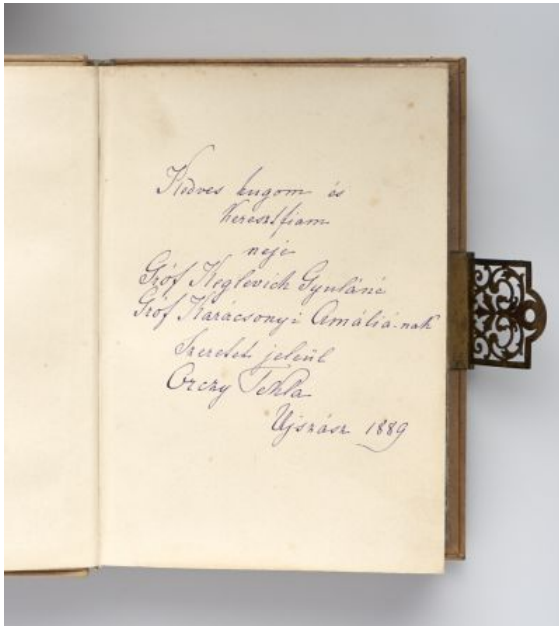 Kedves hugom és
keresztfiam
neje
Gróf Keglevich Gyuláné
Gróf Karácsonyi Amáliá-nak
Szeretet jeléül
Orczy Tekla
Ujszász 1889